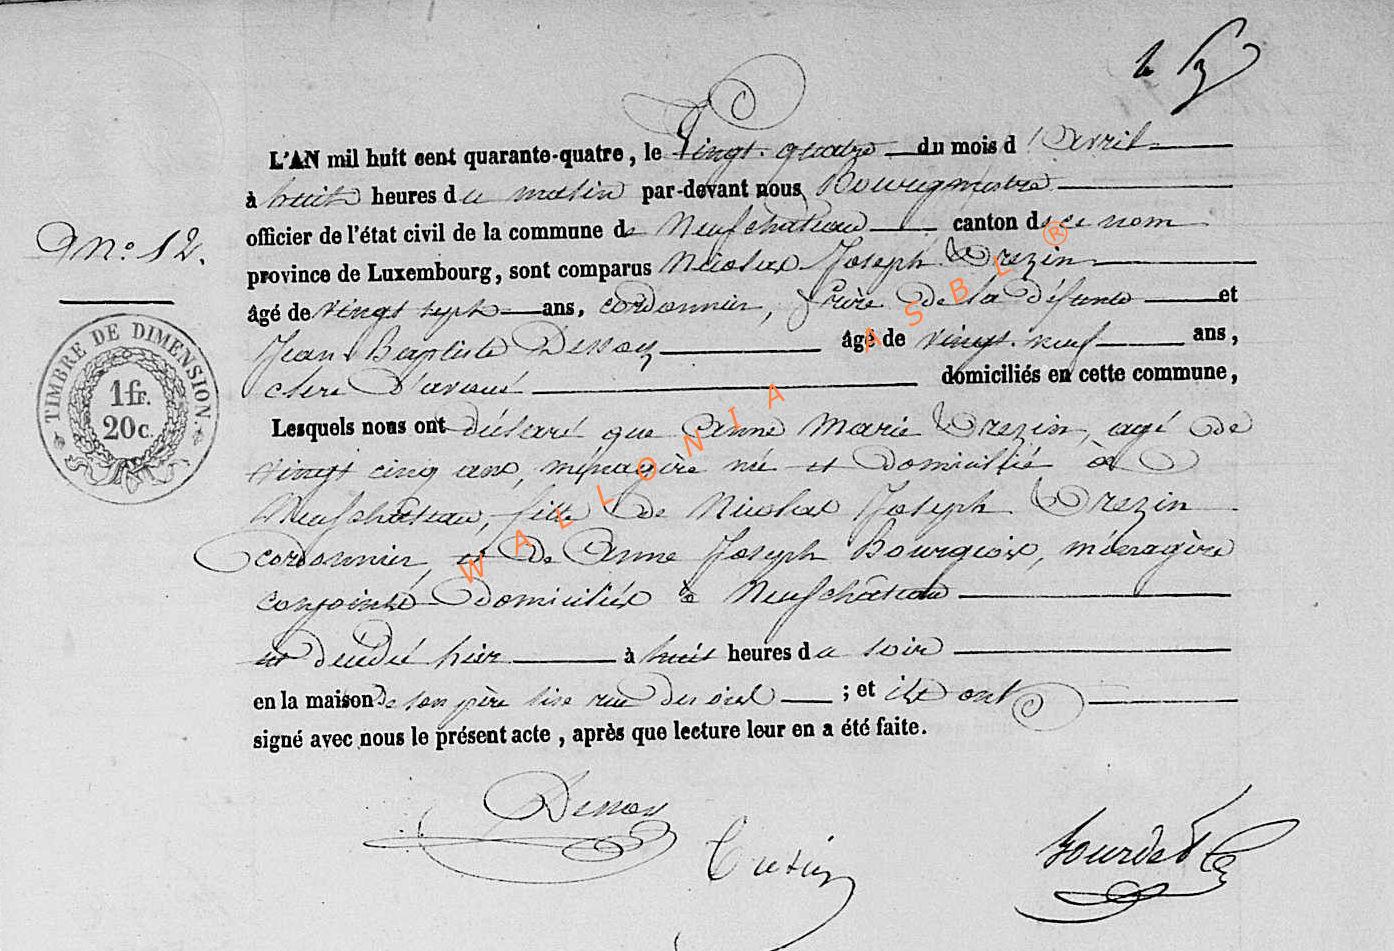 L'AN mil huit cent quarante-quatre, le Vingt-quatre du mois d'Avril
à huit heures du matin par-devant nous Bourgmestre
N° 12.
officier de l'état civil de la commune de Neufchateau canton de ce nom
province de Luxembourg, sont comparus Nicolas Joseph Trezin
âgé de vingt sept ans, cordonnier, frère de la défunte et
Jean-Baptiste Dessoy âgé de vingt-neuf ans,
clerc d'avoué domiciliés en cette commune,
TIMBRE DE DIMENSION
1 fr.
20 c.
Lesquels nous ont déclaré que Anne Marie Trezin, agé de
vingt cinq ans, ménagère né et domicilié à
Neufchâteau, fille de Nicolas Joseph Trezin
cordonnier, et de Anne Joseph Bourgeois, ménagère
conjoints domiciliés à Neufchâteau
est décédé hier à huit heures du soir
en la maison de son père sise rue ; et ils ont
signé avec nous le présent acte, après que lecture leur en a été faite.
Dessoy
Trezin
WALLONIA ASBL ®